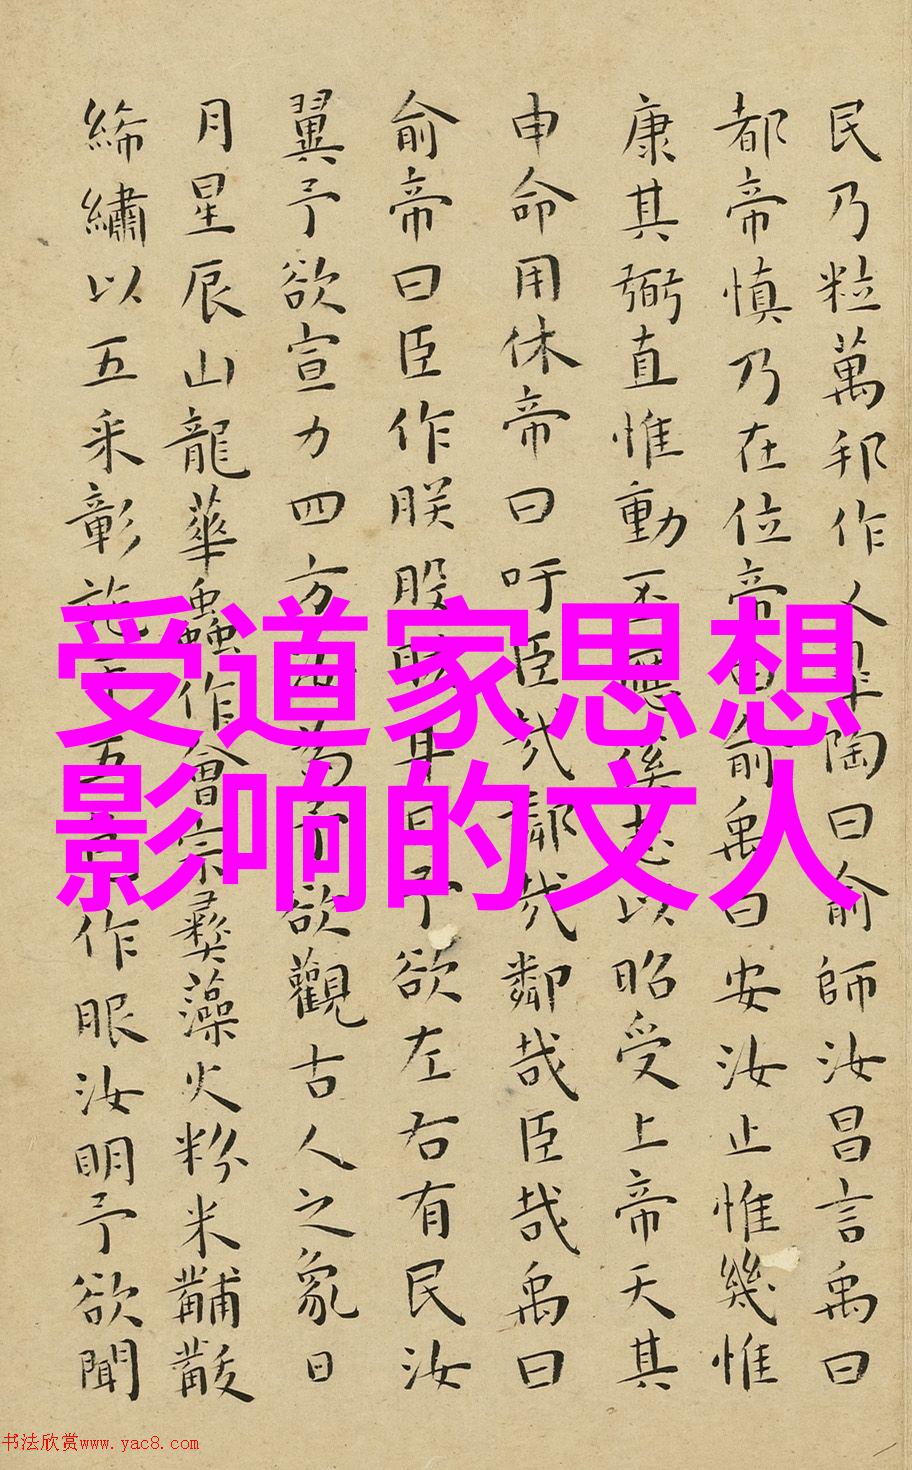 民乃粒萬邦作乂皋陶曰俞師汝昌言禹曰
都帝慎乃在位帝曰俞禹曰安汝止惟幾惟
康其弼直惟動丕應徯志以昭受上帝天其
申命用休帝曰吁臣哉鄰哉鄰哉臣哉禹曰
俞帝曰臣作朕股肱耳目予欲左右有民汝
翼予欲宣力四方汝為予欲觀古人之象日
月星辰山龍華蟲作會宗彝藻火粉米黼黻
絺繡以五采彰施于五色作服汝明予欲聞
受道家思想
影响的文人
书法欣赏www.yac8.com